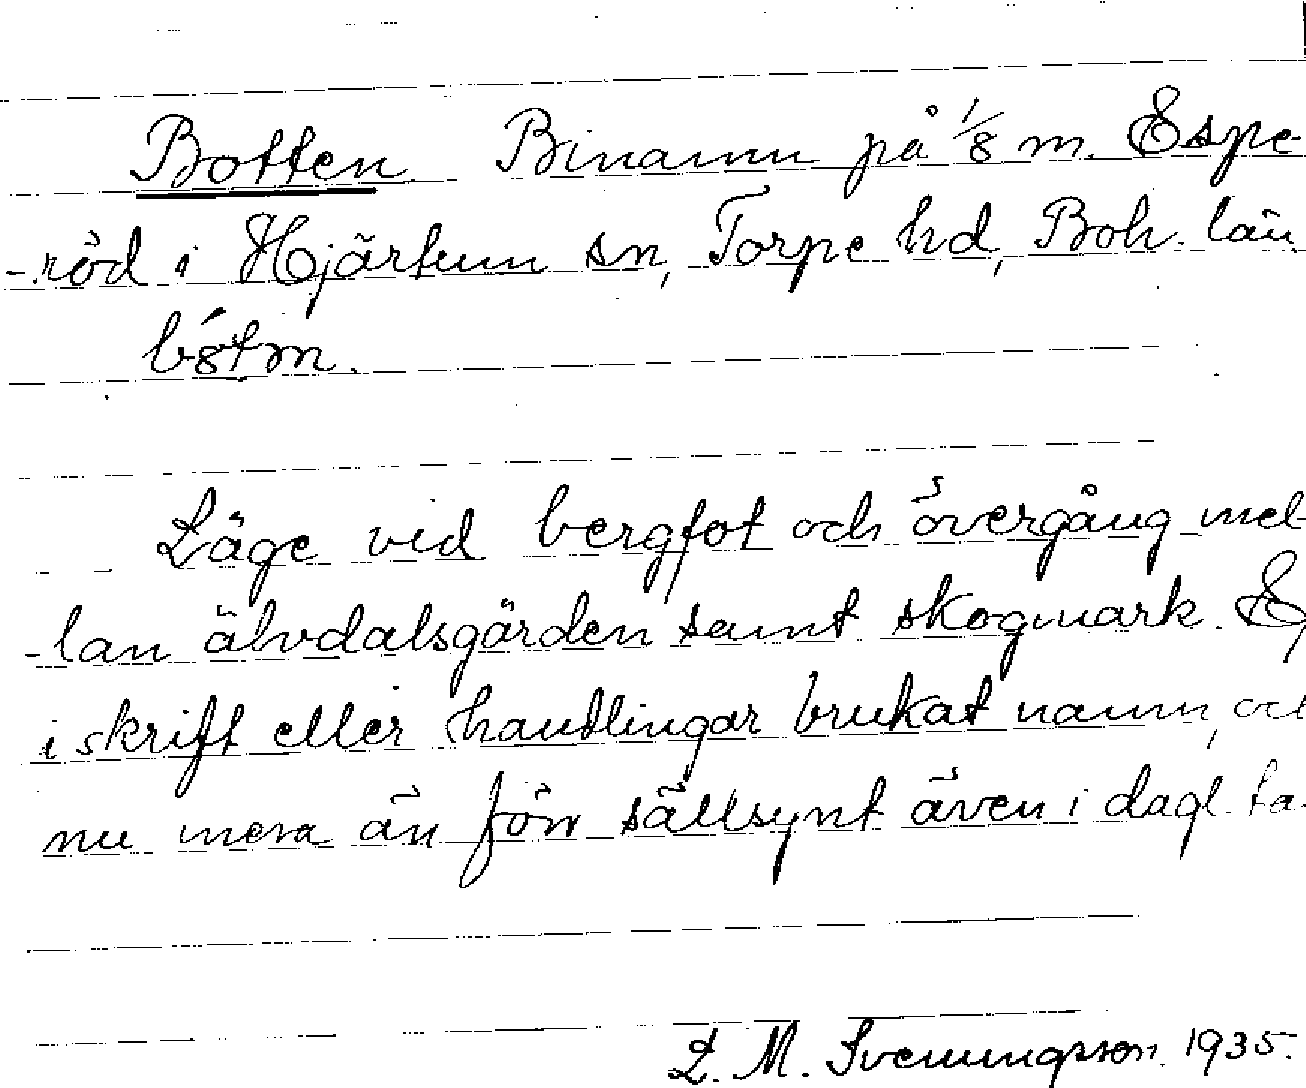 Botten Binamn på 1/8 m. Espe-
-röd i Hjärtum sn, Torpe hd, Boh. län
Läge vid bergfot och övergång mel-
-lan älvdalsgärden samt skogmark.
i skrift eller handlingar brukat namn, och
nu mera än förr sällsynt även i dagl. ta
L. M. Svenningsson. 1935.